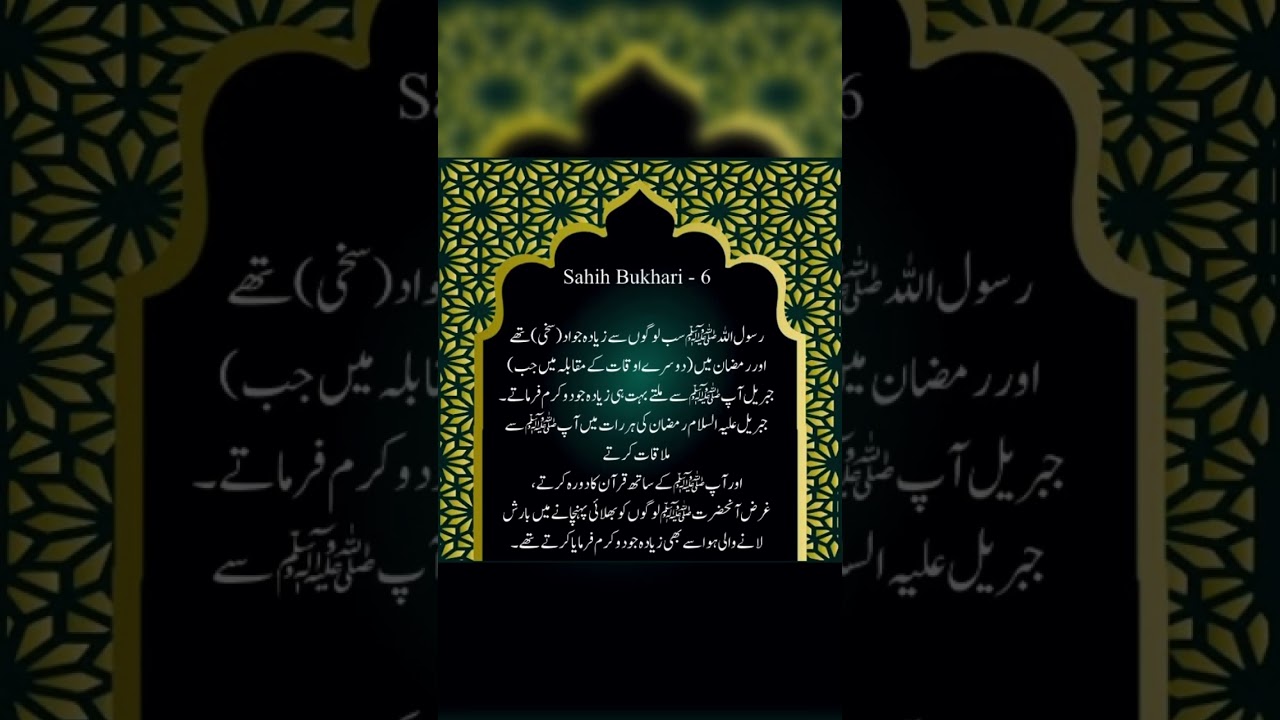 Sahih Bukhari - 6
رسول اللہ ﷺ سب لوگوں سے زیادہ جواد (سخی) تھے
اور رمضان میں (دوسرے اوقات کے مقابلہ میں جب)
جبریل آپ ﷺ سے ملتے بہت ہی زیادہ جود و کرم فرماتے۔
جبریل علیہ السلام رمضان کی ہر رات میں آپ ﷺ سے
ملاقات کرتے
اور آپ ﷺ کے ساتھ قرآن کا دورہ کرتے،
غرض آنحضرت ﷺ لوگوں کو بھلائی پہنچانے میں بارش
لانے والی ہوا سے بھی زیادہ جود و کرم فرمایا کرتے تھے۔